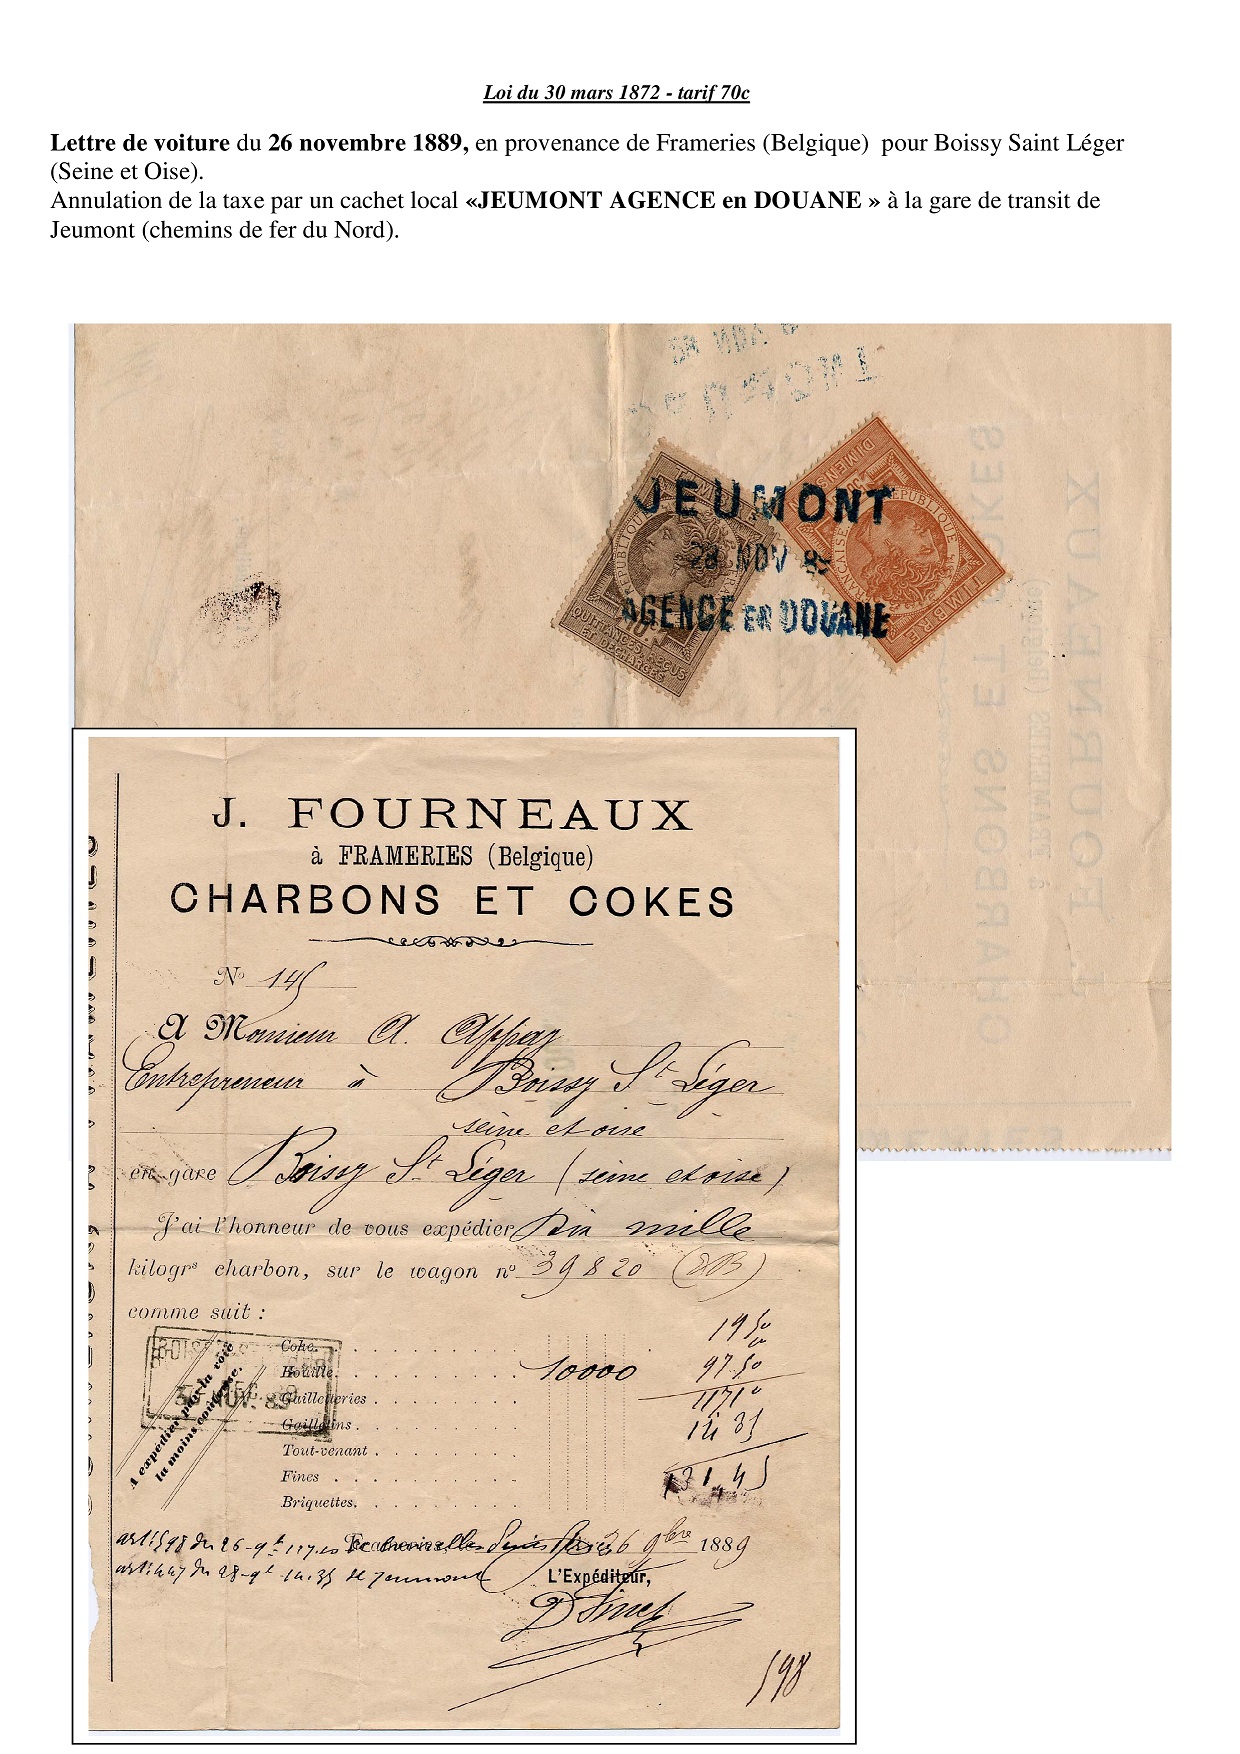 Loi du 30 mars 1872 - tarif 70c
Lettre de voiture du 26 novembre 1889, en provenance de Frameries (Belgique) pour Boissy Saint Léger
(Seine et Oise).
Annulation de la taxe par un cachet local «JEUMONT AGENCE en DOUANE » à la gare de transit de
Jeumont (chemins de fer du Nord).
JEUMONT
28 NOV 89
AGENCE EN DOUANE
RÉPUBLIQUE
QUITTANCES, REÇUS
ET DÉCHARGES
RÉPUBLIQUE
FRANÇAISE
TIMBRE
J. FOURNEAUX
à FRAMERIES (Belgique)
CHARBONS ET COKES
J. FOURNEAUX
à FRAMERIES (Belgique)
CHARBONS ET COKES
No 145
A Monsieur A. Appay
Entrepreneur à Boissy St Léger
seine et oise
en gare Boissy St Léger (seine et oise)
J'ai l'honneur de vous expédier Dix mille
kilogrs charbon, sur le wagon no 39820
comme suit :
A expédier par la voie
la moins coûteuse.
Coke. 19 50
Houille. 10000 97.50
Gailleteries 117 10
Gailletins. 14 35
Tout-venant
Fines 131,45
Briquettes.
26 9bre 1889
L'Expéditeur,
598